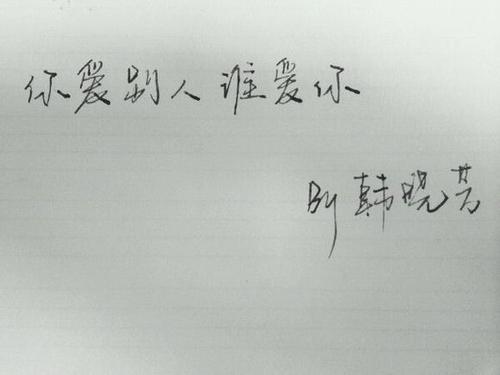 你爱别人谁爱你
By 韩晓芳